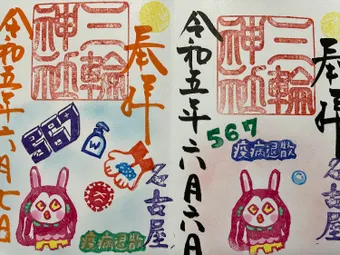 奉拝
三輪
神社
令和五年六月七日
W
名古屋
疫病退散
奉拝
三輪
神社
令和五年六月六日
567
疫病退散
名古屋